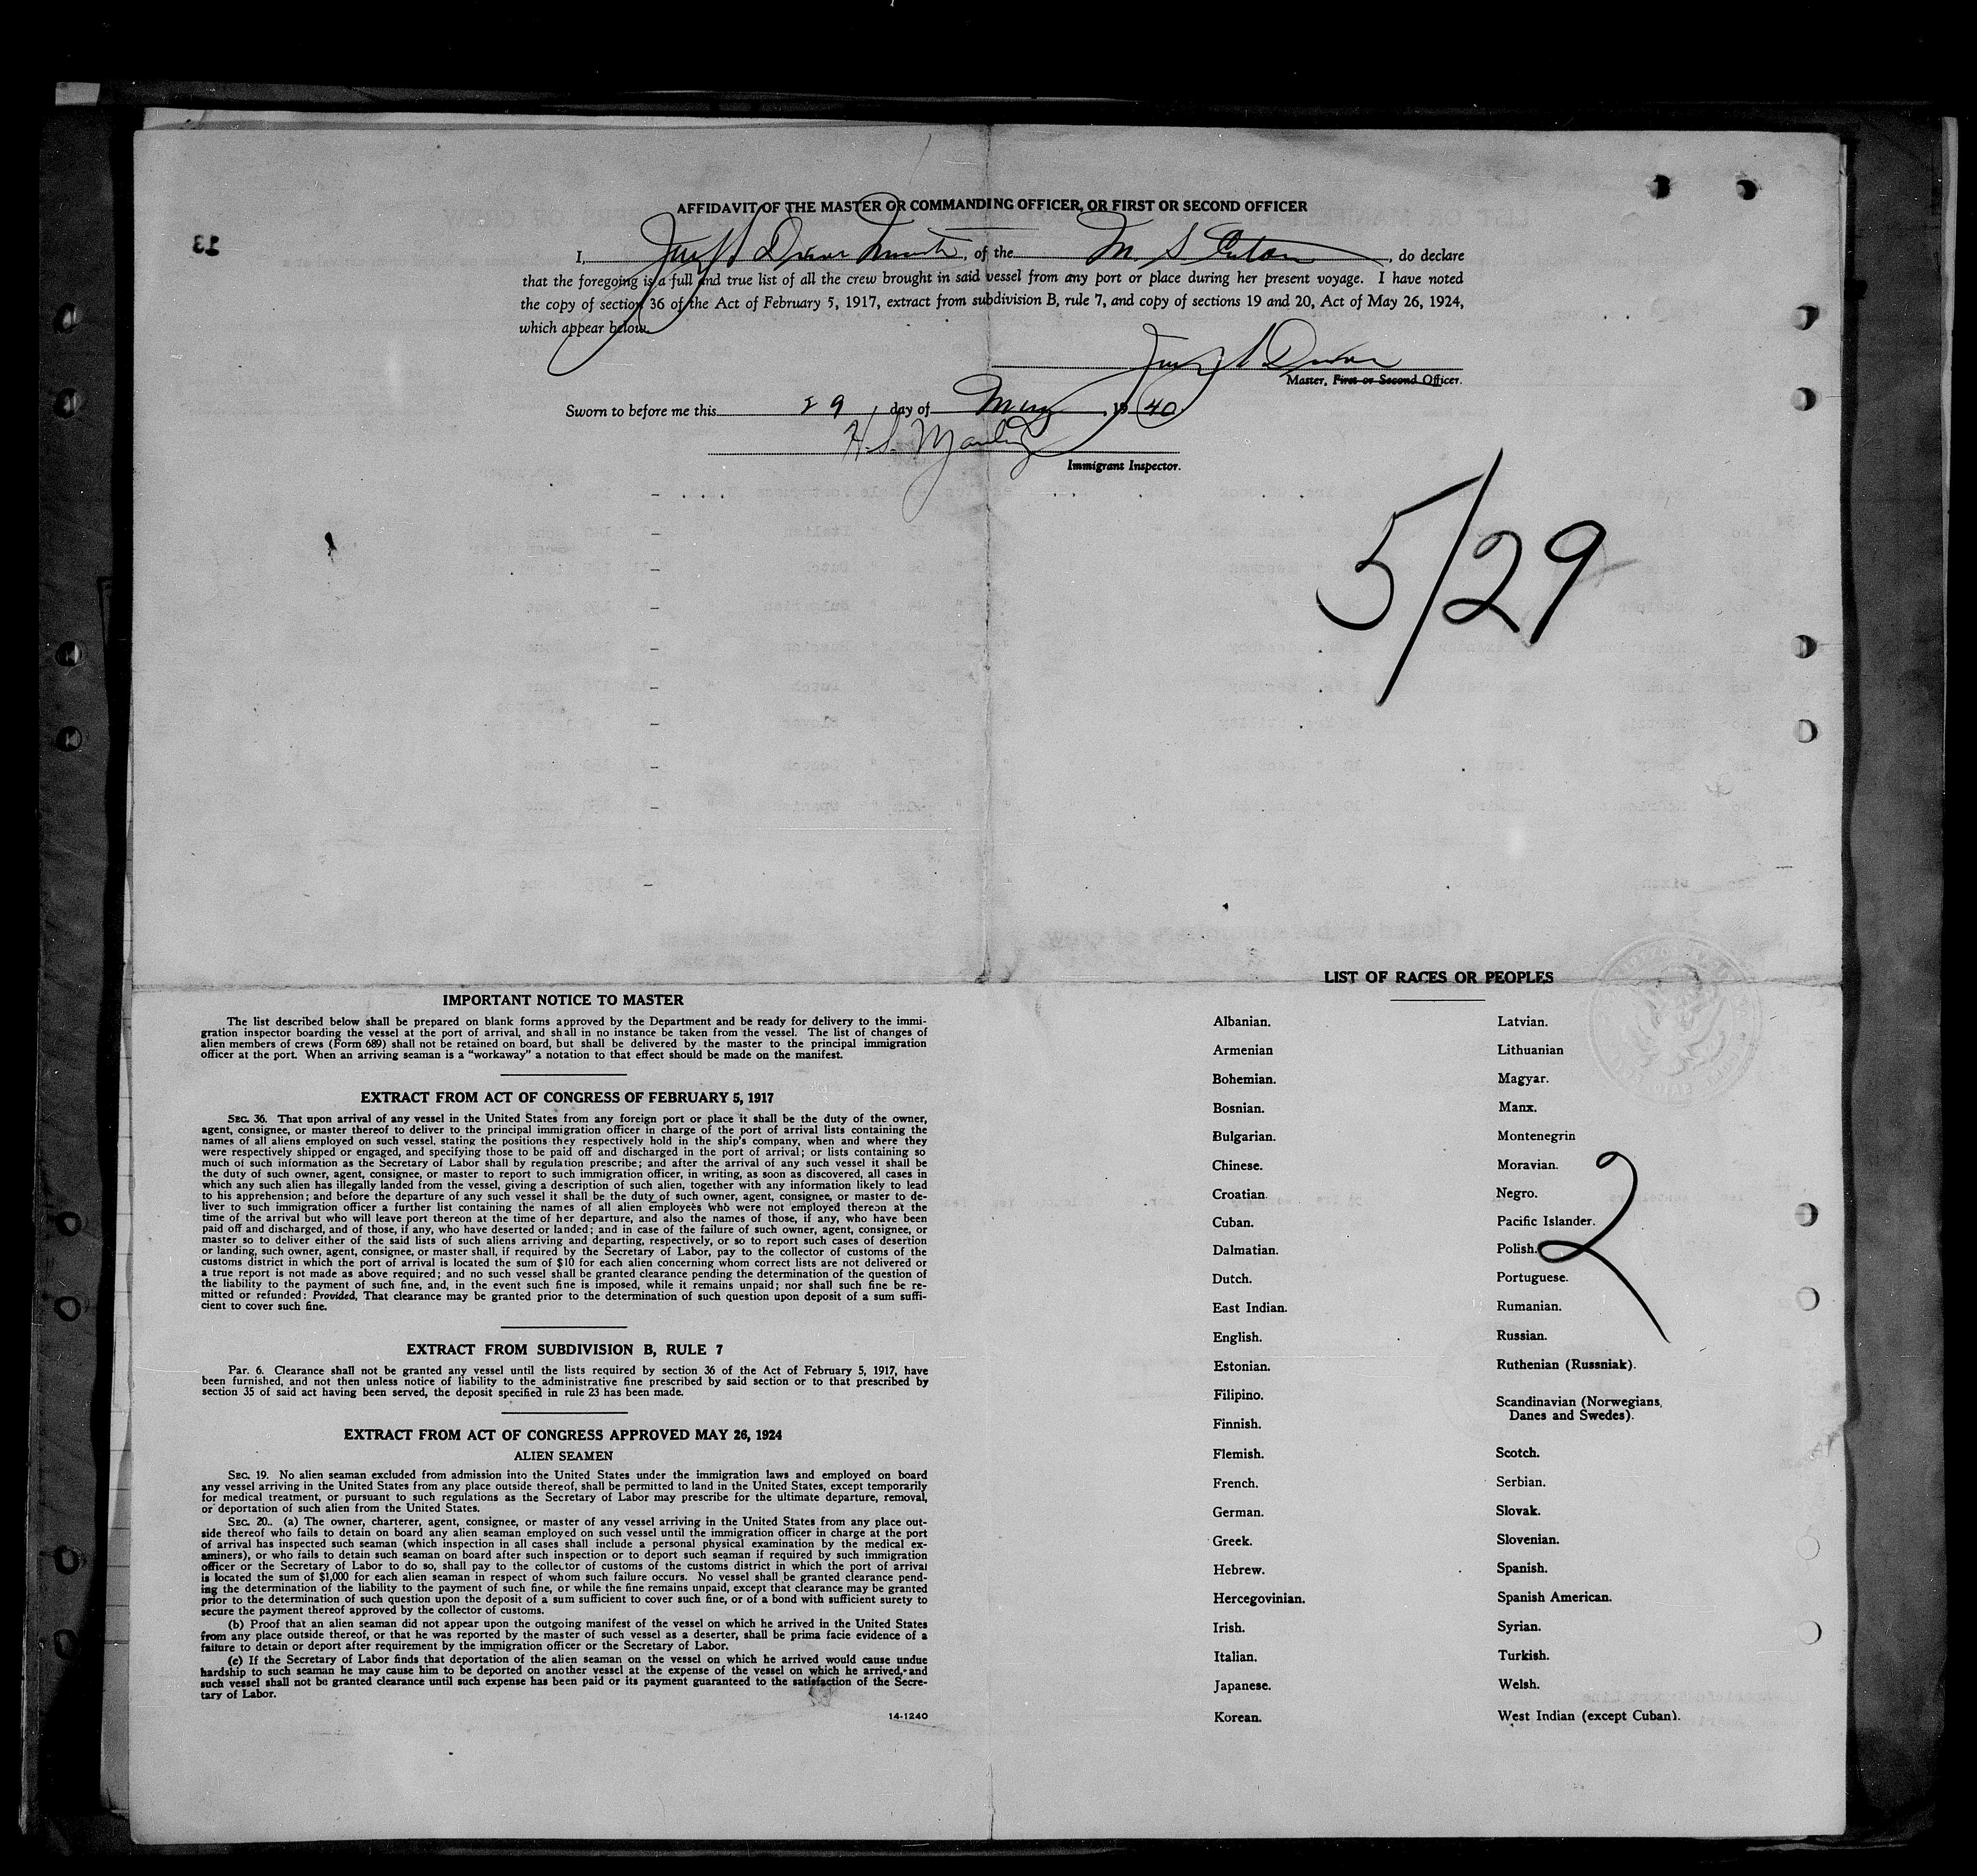 AFFIDAVIT OF THE MASTER OR COMMANDING OFFICER, OR FIRST OR SECOND OFFICER
13
I, of the M. S. , do declare
that the foregoing is a full and true list of all the crew brought in said vessel from any port or place during her present voyage. I have noted
the copy of section 36 of the Act of February 5, 1917, extract from subdivision B, rule 7, and copy of sections 19 and 20, Act of May 26, 1924,
which appear below.
Master, First or Second Officer.
Sworn to before me this 29, day of May, 1940
H. S.
Immigrant Inspector.
5/29
IMPORTANT NOTICE TO MASTER
The list described below shall be prepared on blank forms approved by the Department and be ready for delivery to the immi-
gration inspector boarding the vessel at the port of arrival, and shall in no instance be taken from the vessel. The list of changes of
alien members of crews (Form 689) shall not be retained on board, but shall be delivered by the master to the principal immigration
officer at the port. When an arriving seaman is a "workaway" a notation to that effect should be made on the manifest.
EXTRACT FROM ACT OF CONGRESS OF FEBRUARY 5, 1917
SEC. 36. That upon arrival of any vessel in the United States from any foreign port or place it shall be the duty of the owner,
agent, consignee, or master thereof to deliver to the principal immigration officer in charge of the port of arrival lists containing the
names of all aliens employed on such vessel, stating the positions they respectively hold in the ship's company, when and where they
were respectively shipped or engaged, and specifying those to be paid off and discharged in the port of arrival; or lists containing so
much of such information as the Secretary of Labor shall by regulation prescribe; and after the arrival of any such vessel it shall be
the duty of such owner, agent, consignee, or master to report to such immigration officer, in writing, as soon as discovered, all cases in
which any such alien has illegally landed from the vessel, giving a description of such alien, together with any information likely to lead
to his apprehension; and before the departure of any such vessel it shall be the duty of such owner, agent, consignee, or master to de-
liver to such immigration officer a further list containing the names of all alien employees who were not employed thereon at the
time of the arrival but who will leave port thereon at the time of her departure, and also the names of those, if any, who have been
paid off and discharged, and of those, if any, who have deserted or landed; and in case of the failure of such owner, agent, consignee, or
master so to deliver either of the said lists of such aliens arriving and departing, respectively, or so to report such cases of desertion
or landing, such owner, agent, consignee, or master shall, if required by the Secretary of Labor, pay to the collector of customs of the
customs district in which the port of arrival is located the sum of $10 for each alien concerning whom correct lists are not delivered or
a true report is not made as above required; and no such vessel shall be granted clearance pending the determination of the question of
the liability to the payment of such fine, and, in the event such fine is imposed, while it remains unpaid; nor shall such fine be re-
mitted or refunded: Provided, That clearance may be granted prior to the determination of such question upon deposit of a sum suffi-
cient to cover such fine.
EXTRACT FROM SUBDIVISION B, RULE 7
Par. 6. Clearance shall not be granted any vessel until the lists required by section 36 of the Act of February 5, 1917, have
been furnished, and not then unless notice of liability to the administrative fine prescribed by said section or to that prescribed by
section 35 of said act having been served, the deposit specified in rule 23 has been made.
EXTRACT FROM ACT OF CONGRESS APPROVED MAY 26, 1924
ALIEN SEAMEN
SEC. 19. No alien seaman excluded from admission into the United States under the immigration laws and employed on board
any vessel arriving in the United States from any place outside thereof, shall be permitted to land in the United States, except temporarily
for medical treatment, or pursuant to such regulations as the Secretary of Labor may prescribe for the ultimate departure, removal,
or deportation of such alien from the United States.
SEC. 20. (a) The owner, charterer, agent, consignee, or master of any vessel arriving in the United States from any place out-
side thereof who fails to detain on board any alien seaman employed on such vessel until the immigration officer in charge at the port
of arrival has inspected such seaman (which inspection in all cases shall include a personal physical examination by the medical ex-
aminers), or who fails to detain such seaman on board after such inspection or to deport such seaman if required by such immigration
officer or the Secretary of Labor to do so, shall pay to the collector of customs of the customs district in which the port of arrival
is located the sum of $1,000 for each alien seaman in respect of whom such failure occurs. No vessel shall be granted clearance pend-
ing the determination of the liability to the payment of such fine, or while the fine remains unpaid, except that clearance may be granted
prior to the determination of such question upon the deposit of a sum sufficient to cover such fine, or of a bond with sufficient surety to
secure the payment thereof approved by the collector of customs.
(b) Proof that an alien seaman did not appear upon the outgoing manifest of the vessel on which he arrived in the United States
from any place outside thereof, or that he was reported by the master of such vessel as a deserter, shall be prima facie evidence of a
failure to detain or deport after requirement by the immigration officer or the Secretary of Labor.
(c) If the Secretary of Labor finds that deportation of the alien seaman on the vessel on which he arrived would cause undue
hardship to such seaman he may cause him to be deported on another vessel at the expense of the vessel on which he arrived, and
such vessel shall not be granted clearance until such expense has been paid or its payment guaranteed to the satisfaction of the Secre-
tary of Labor.
14-1240
LIST OF RACES OR PEOPLES
Albanian.
Armenian
Bohemian.
Bosnian.
Bulgarian.
Chinese.
Croatian.
Cuban.
Dalmatian.
Dutch.
East Indian.
English.
Estonian.
Filipino.
Finnish.
Flemish.
French.
German.
Greek.
Hebrew.
Hercegovinian.
Irish.
Italian.
Japanese.
Korean.
Latvian.
Lithuanian
Magyar.
Manx.
Montenegrin
Moravian.
Negro.
Pacific Islander.
Polish.
Portuguese.
Rumanian.
Russian.
Ruthenian (Russniak).
Scandinavian (Norwegians,
Danes and Swedes).
Scotch.
Serbian.
Slovak.
Slovenian.
Spanish.
Spanish American.
Syrian.
Turkish.
Welsh.
West Indian (except Cuban).
2